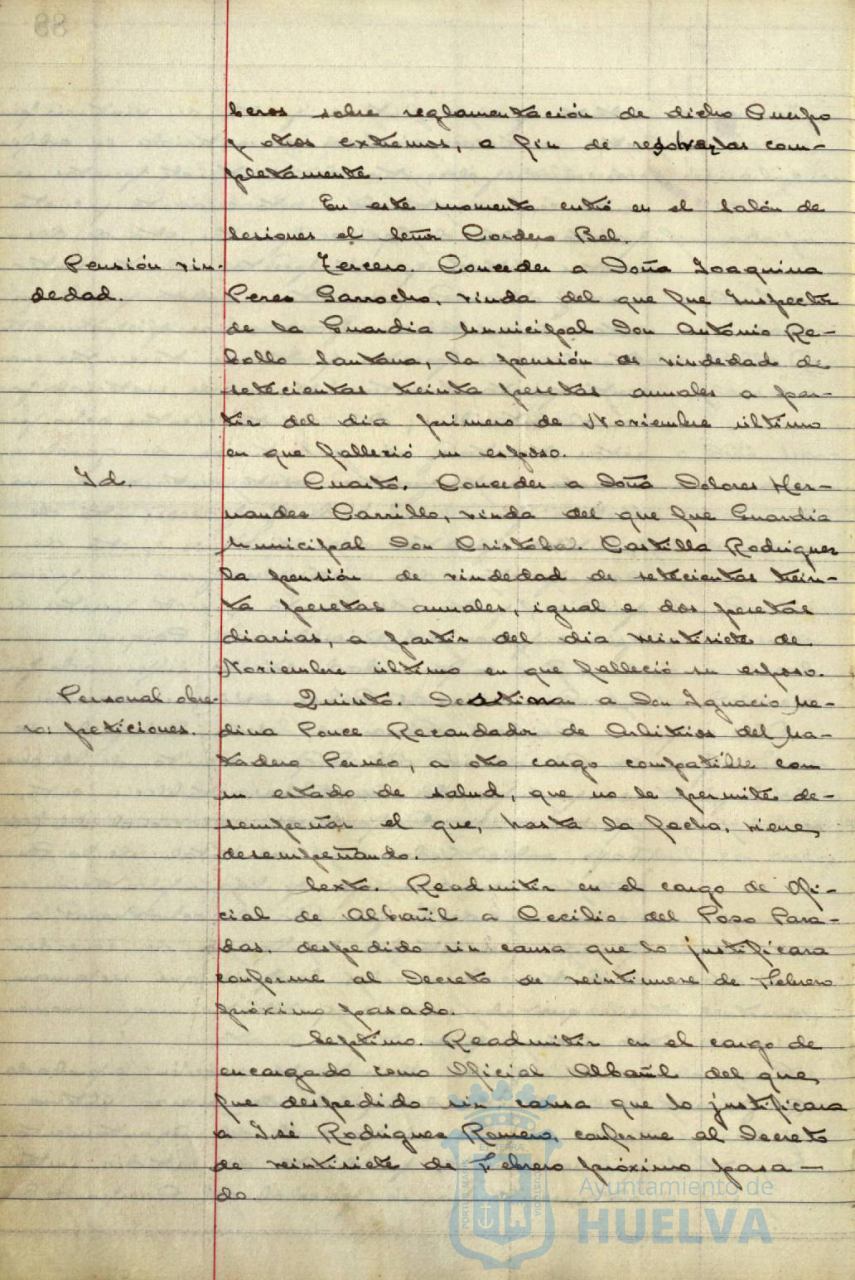 beros sobre reglamentación de dicho Cuerpo
y otros extremos, a fin de resolverlas com-
pletamente.
En este momento entró en el Salón de
Sesiones el Señor Cordero Bel.
Pensión viu-
dedad.
Tercero. Conceder a Doña Joaquina
Peres Garrocho, viuda del que fue Inspector
de la Guardia Municipal Don Antonio Re-
bollo Santana, la pensión de viudedad de
setecientas treinta pesetas anuales a par-
tir del dia primero de Noviembre último
en que falleció su esposo.
Id.
Cuarto. Conceder a Doña Dolores Her-
nandez Carrillo, viuda del que fue Guardia
Municipal Don Cristóbal Castilla Rodriguez
la pensión de viudedad de setecientas trein-
ta pesetas anuales, igual a dos pesetas
diarias, a partir del dia veintisiete de
Noviembre último en que falleció su esposo.
Personal obre-
ro: peticiones.
Quinto. Destinar a Don Ignacio Me-
dina Ponce Recaudador de Arbitrios del Ma-
tadero Perneo, a otro cargo compatible con
su estado de salud, que no le permite de-
sempeñar el que, hasta la fecha, viene
desempeñando.
Sexto. Readmitir en el cargo de Ofi-
cial de Albañil a Cecilio del Poso Para-
das, despedido sin causa que lo justificara
conforme al Decreto de veintinueve de Febrero
próximo pasado.
Septimo. Readmitir en el cargo de
encargado como Oficial Albañil del que
fue despedido sin causa que lo justificara
a José Rodriguez Romero, conforme al Decreto
de veintisiete de Febrero próximo pasa-
do.
Ayuntamiento de
HUELVA